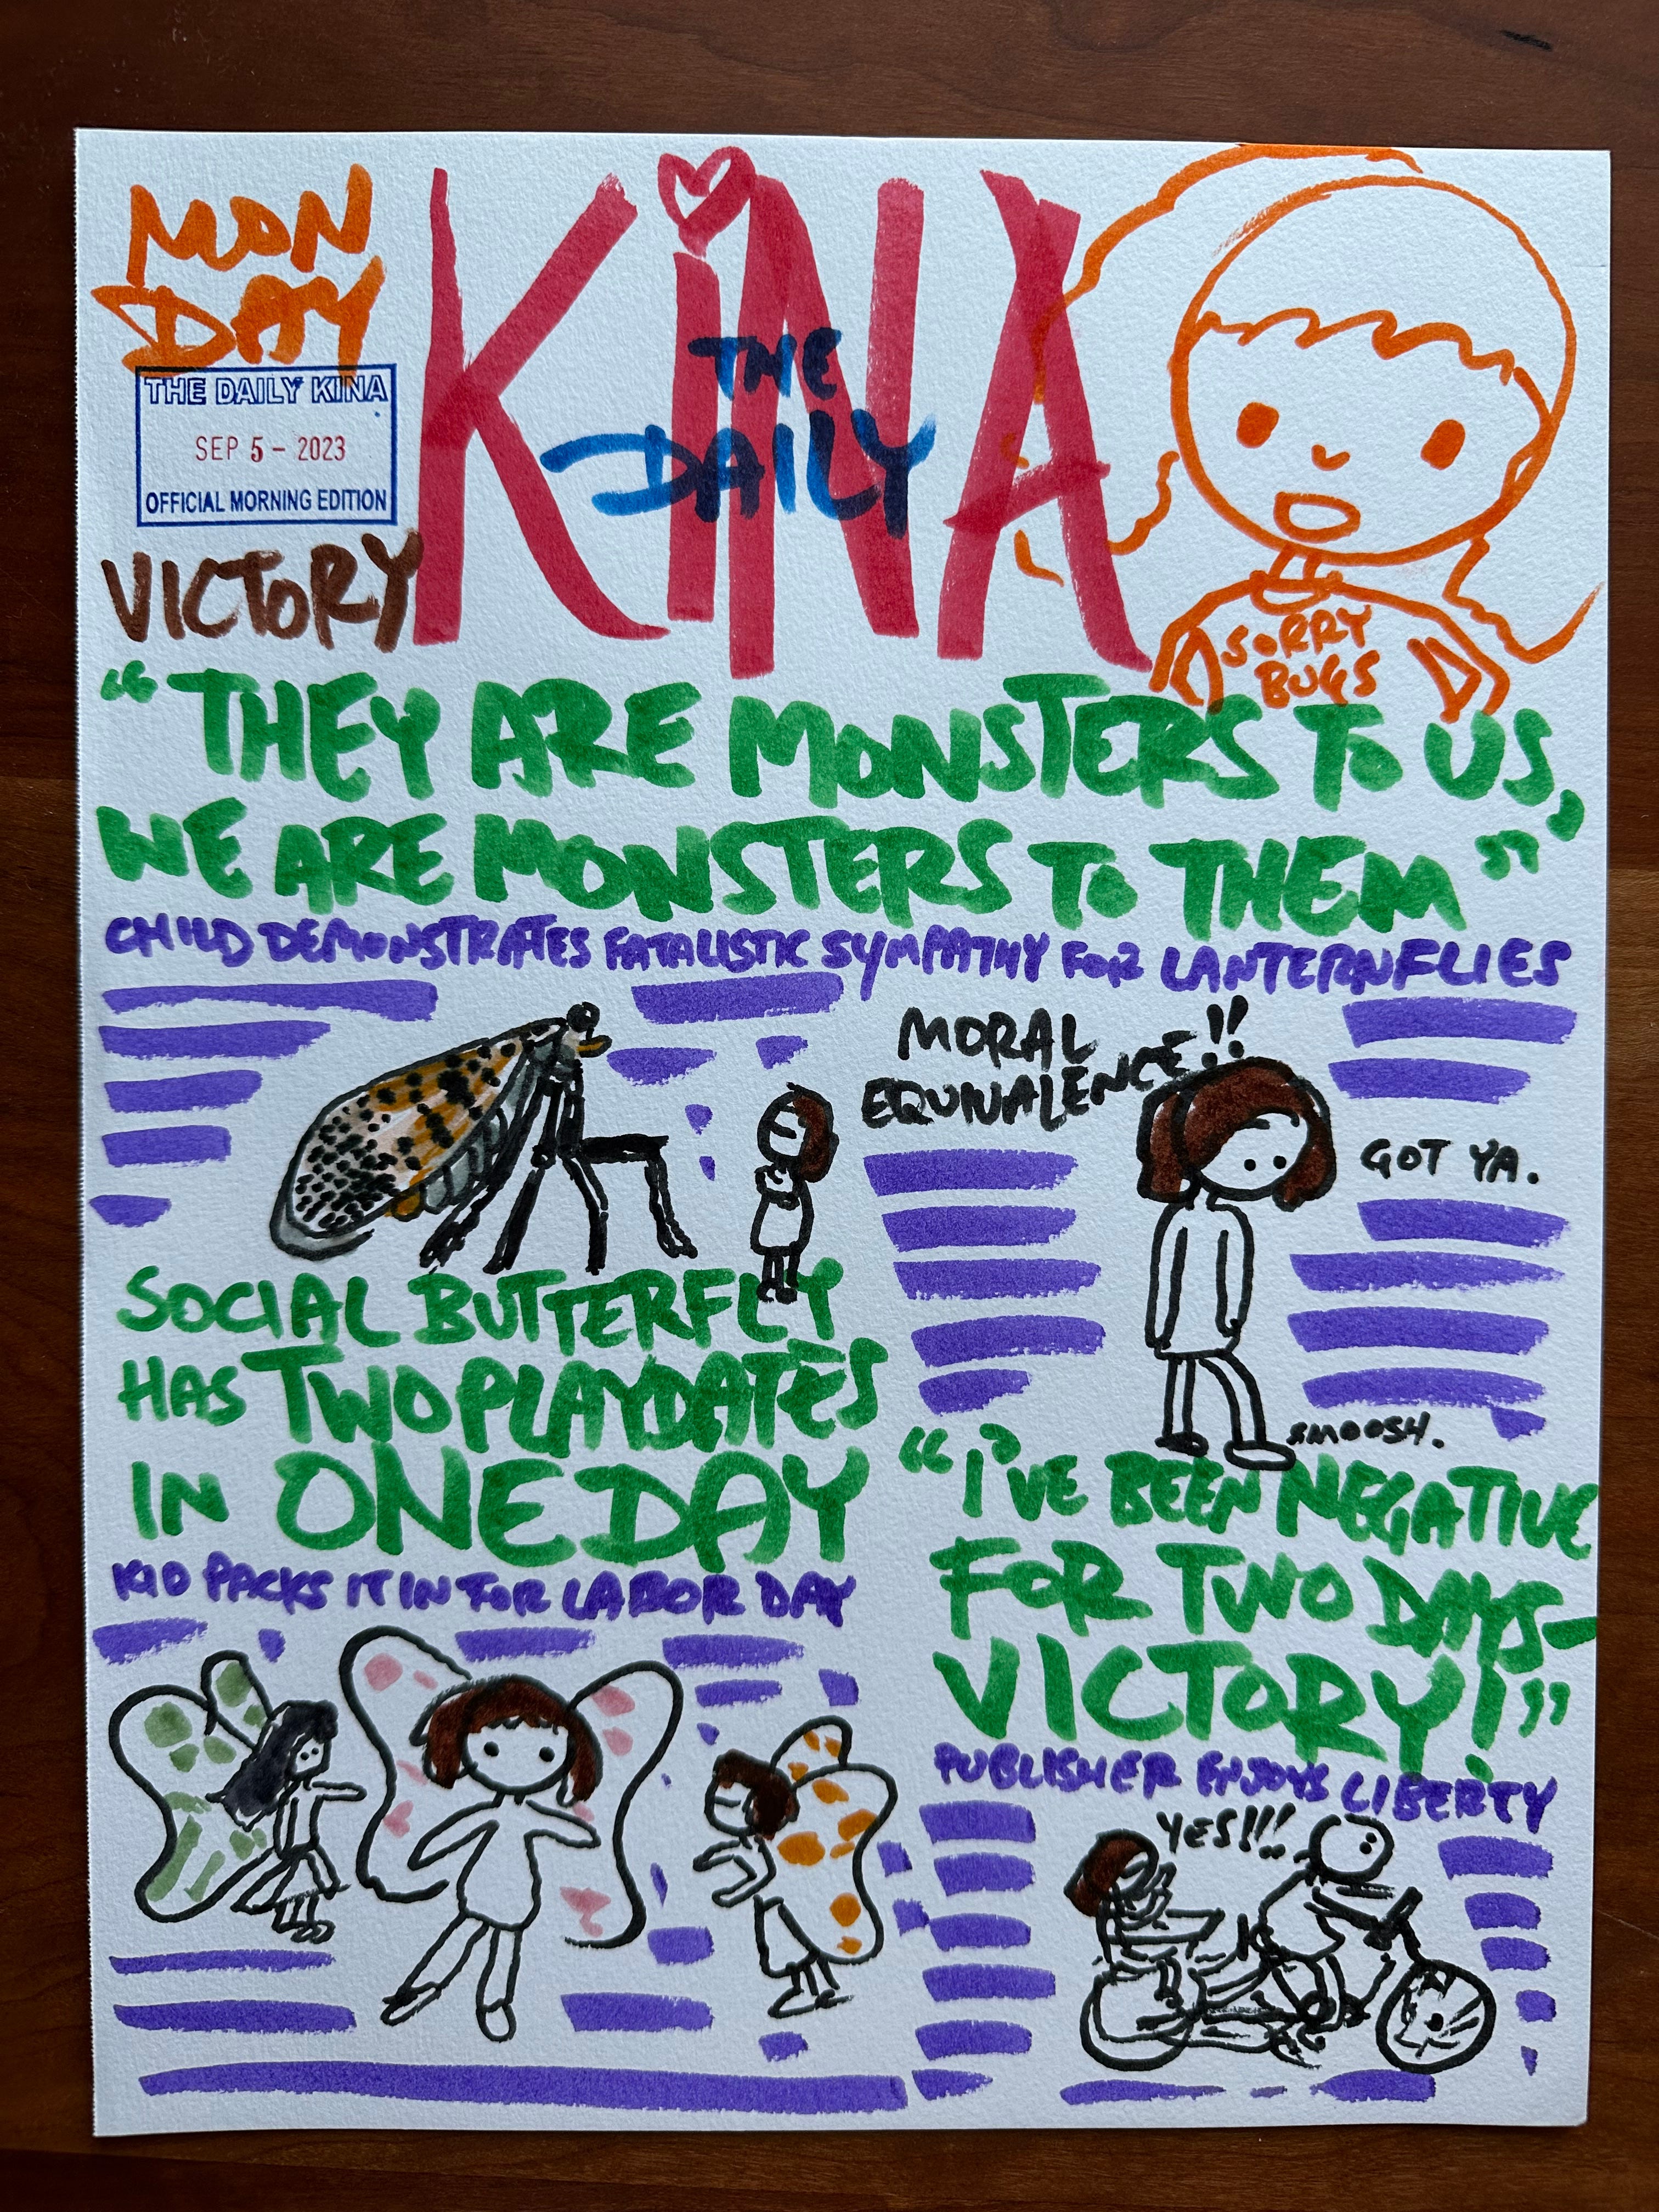 MON
DAY
THE DAILY KINA
SEP 5 - 2023
OFFICIAL MORNING EDITION
VICTORY
KiNA
THE
DAILY
SORRY
BUGS
"THEY ARE MONSTERS TO US,
WE ARE MONSTERS TO THEM"
CHILD DEMONSTRATES FATALISTIC SYMPATHY FOR LANTERNFLIES
MORAL
EQUIVALENCE!!
GOT YA.
SMOOSH.
SOCIAL BUTTERFLY
HAS TWO PLAYDATES
IN ONE DAY
KID PACKS IT IN FOR LABOR DAY
"I'VE BEEN NEGATIVE
FOR TWO DAYS-
VICTORY!"
PUBLISHER ENJOYS LIBERTY
YES!!!